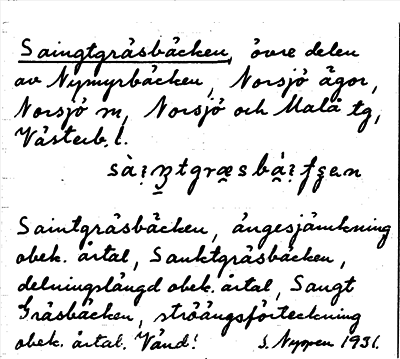 Saingtgräsbäcken, övre delen
av Nymyrbäcken, Norsjö ägor,
Norsjö sn, Norsjö och Malå tg,
Västerb. l.
Saintgräsbäcken, ängesjämkning
obek. årtal, Sanktgräsbäcken,
delningslängd obek. årtal, Sangt
Gräsbäcken, ströängsförteckning
obek. årtal. Vänd!
1931.